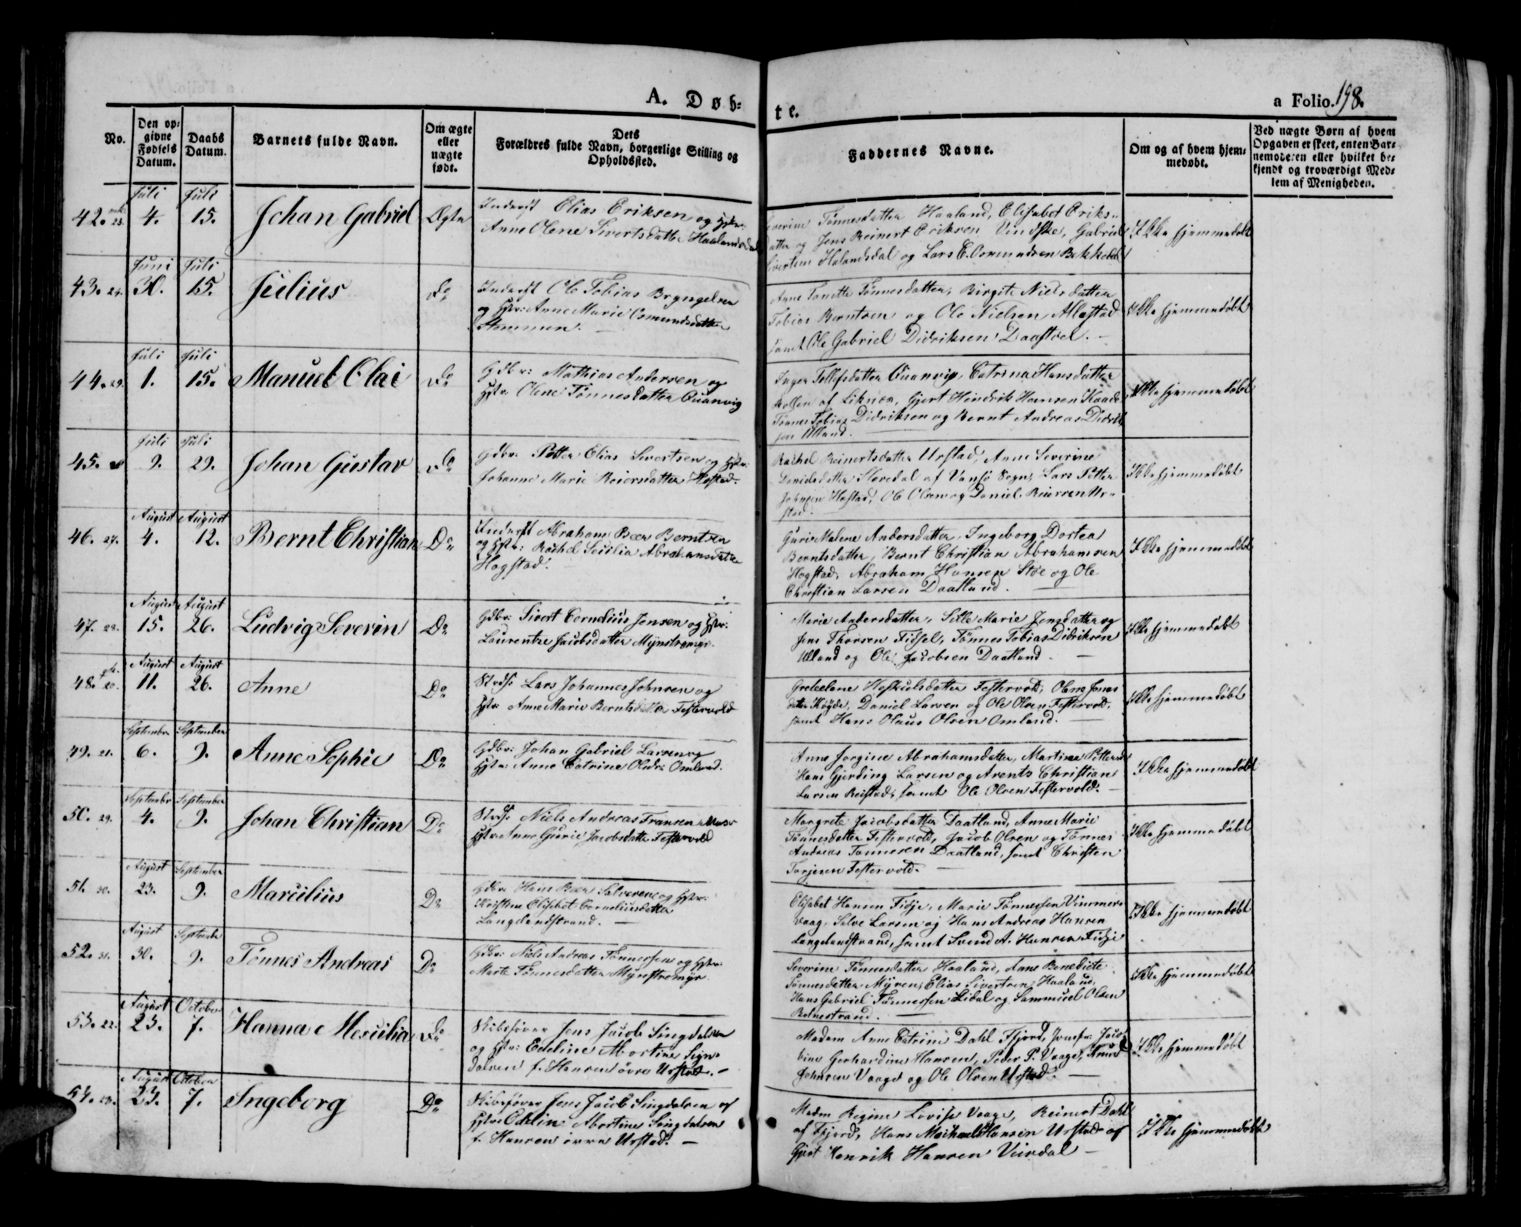 A. Døb-
te.
a Folio. 198.
No.
Den op-
givne
Fødsels
Datum.
Daabs
Datum.
Barnets fulde Navn.
Om ægte
eller
uægte
født.
Dets
Forældres fulde Navn, borgerlige Stilling og
Opholdssted.
Faddernes Navne.
Om og af hvem hjem-
medøbt.
Ved uægte Børn af hvem
Opgaven er skeet, enten Bar-
nemoderen eller hvilket be-
kjendt og troværdigt Med-
lem af Menigheden.
42. 23.
Juli
4.
Juli
15.
Johan Gabriel
Ægte
Inderst Elias Eriksen og Hstr:
Anne Olene Sivertsdatter Haalandsdal
Severine Tønnesdatter Haaland, Elisabet Eriks-
datter og Jens Reinert Eriksen Gabriel
Sivertsen Halandsdal og Lars E. Osmundsen Bakkedal
Ikke hjemmedøbt
43. 24.
Juni
30.
Juli
15.
Julius
Do
Inderst Ole Tobias Bryngelsen
og Hstr: Anne Marie Osmundsdatter
Anne Tonette Tønnesdatter, Birgite Nielsdatter
Tobias Berntsen og Ole Nielsen
samt Ole Gabriel Didriksen Daastøel.
Ikke hjemmedøbt
44. 25.
Juli
1.
Juli
15.
Manuel Olai
Do
Gdbr: Mathias Andersen og
Hstr: Olene Tønnesdatter Qvanvig
Inger Tollefsdatter Qvanvig, Catrina Hansdatter
af Liknæs, Gjert Hendrik Hansen
Tønnes Tobias Didriksen og Bernt Andreas Didrik-
sen Ulland.
Ikke hjemmedøbt
45.
Juli
9.
Juli
29.
Johan Gustav
Do
Gdbr: Petter Elias Sivertsen og Hstr:
Johanne Marie Reiersdatter Høstad.
Rachel Reinertsdatter Urstad, Anne Severine
af Vansø Sogn, Lars Petter
Johnsen Høstad, Ole Olsen og Daniel Ur-
stad.
Ikke hjemmedøbt
46. 27.
August
4.
August
12.
Bernt Christian
Do
Inderst Abraham Beer Berntsen
og Hstr: Rachel Sesilia Abrahamsdatter
Høgstad.
Guri Malene Andersdatter, Ingeborg Dortea
Berntsdatter, Bernt Christian Abrahamsen
Høgstad, Abraham Hansen Støe og Ole
Christian Larsen Daatland.
Ikke hjemmedøbt
47. 28.
August
15.
August
26.
Ludvig Severin
Do
Gdbr: Sivert Cornelius Jensen og Hstr:
Laurentze Jacobsdatter Mynstremyr.
Marie Andersdatter, Sille Marie Jensdatter og
Jens Thorsen Fidsel, Tønnes Tobias Didriksen
Ulland og Ole Jacobsen Daatland.
Ikke hjemmedøbt
48. 20.
August
11.
August
26.
Anne
Do
Lars Johannes Johnsen og
Hstr: Anne Marie Berntsdatter Festervold
Hoskuldsdatter Festervold, Olene Jens-
datter Høyde, Daniel Larsen og Ole Olsen Festervold,
samt Hans Olaus Olsen Omland.
Ikke hjemmedøbt
49. 21.
September
6.
September
9.
Anne Sophie
Do
Gdbr: Johan Gabriel Larsen og
Hstr: Anne Catrine Olsdr: Omland.
Anne Jorgine Abrahamsdatter, Martine Pettersdr
Hans Gjerding Larsen og Arents Christian
Larsen Reistad, samt Ole Olsen Festervold.
Ikke hjemmedøbt
50. 29.
September
4.
September
9.
Johan Christian
Do
Niels Andreas Fransen
Hstr: Anne Gurie Jacobsdatter Festervold
Margrete Jacobsdatter Daatland, Anne Marie
Tønnesdatter Festervold, Jacob Olsen og Tønnes
Andreas Tønnesen Daatland, samt Christen
Torjesen Festervold.
Ikke hjemmedøbt
51. 30.
August
23.
September
9.
Marcilius
Do
Gdbr: Hans Beer Salvesen og Hstr:
Elisabet Corneliusdatter
Langelandstrand.
Elisabet Hansen Fidje, Marie Tønnesen Vimmers-
vaag, Salve Larsen og Hans Andreas Hansen
Langelandstrand, samt Svend A. Hansen Fidje
Ikke hjemmedøbt
52. 31.
August
30.
September
9.
Tønnes Andreas
Do
Gdbr: Niels Andreas Tønnessen og Hstr:
Mette Tønnesdatter Mynstremyr.
Severine Tønnesdatter Haaland, Anne Benedicte
Tønnesdatter Myren, Elias Sivertsen, Haaland,
Hans Gabriel Tønnessen Lidal og Sammuel Olsen
Ikke hjemmedøbt
53. 22.
August
23.
October
7.
Hanna Mescilia
Do
Skibsfører Jens Jacob Singdalsen
og Hstr: Edeline Abortine Sing-
dalsen f. Hansen øvre Urstad. —
Madam Anne Catrine Dahl Fjord, Jomfru Jaco-
bine Gerhardine Hansen, Peder P. Vaage,
Johnsen Vaaget og Ole Olsen Urstad.
Ikke hjemmedøbt
54. 23.
August
23.
October
7.
Ingeborg
Do
Skibsfører Jens Jacob Singdalsen og
Hstr: Odelin Abortine Singdalsen
f. Hansen øvre Urstad. —
Madm Regine Lovise Vaage, Reinert Dahl
af Fjord, Hans Michael Hansen Urstad og
Gjert Henrik Hansen Veirdal —
Ikke hjemmedøbt